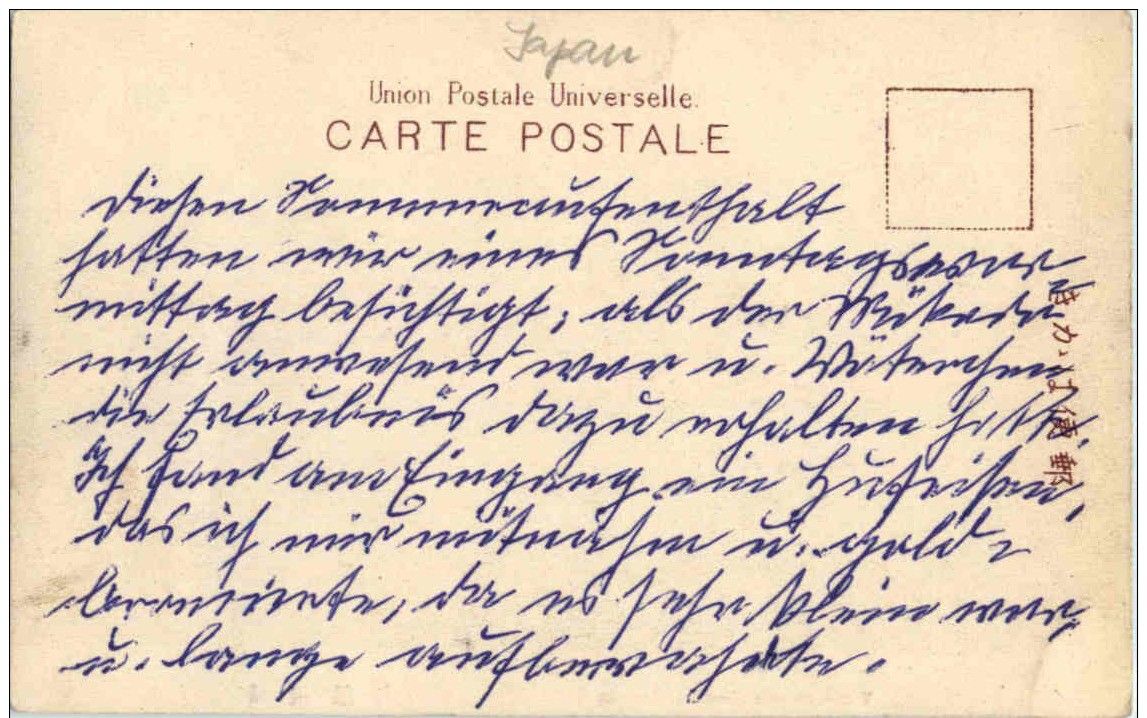 Japan
Union Postale Universelle.
CARTE POSTALE
diesen Sommeraufenthalt
hatten wir eines Sonntagsvor
mittag besichtigt, als der Mikado
nicht anwesend war u. Väterchen
die Erlaubnis dazu erhalten hatte.
Ich fand am Eingang ein Hufeisen,
das ich mir mitnahm u. gold=
bronzierte, da es sehr klein war,
u. lange aufbewahrte.
きかは便郵